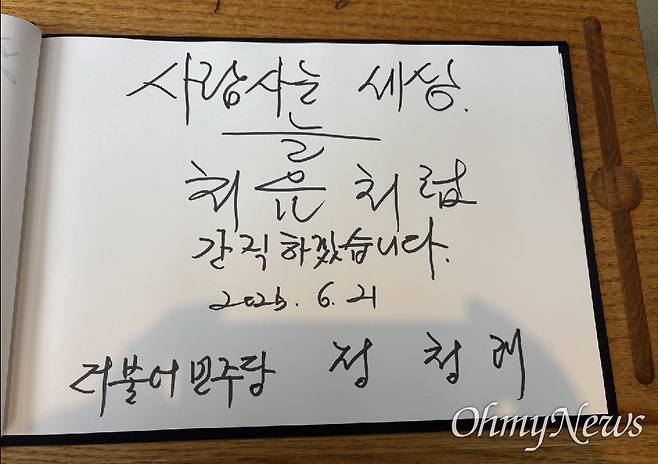 사람사는 세상.
늘
처음처럼
간직하겠습니다.
2025. 6. 21
더불어민주당 정 청 래
OhmyNews